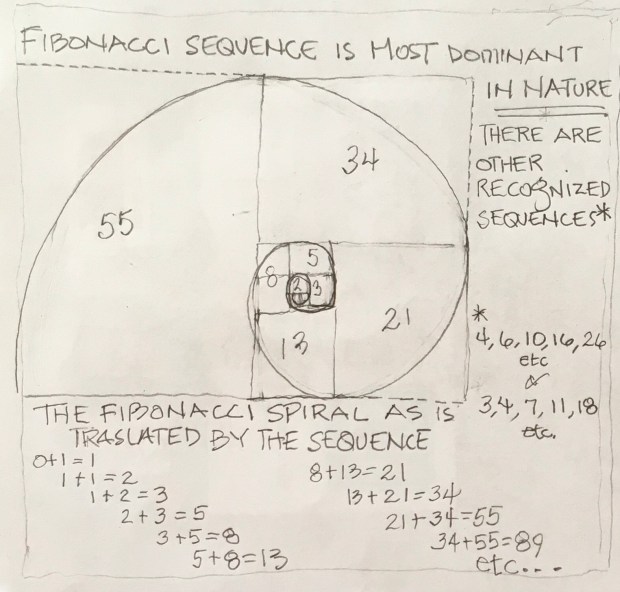 FIBONACCI SEQUENCE IS MOST DOMINANT
IN NATURE
THERE ARE
OTHER
RECOGNIZED
SEQUENCES*
34
55
5
8
2
3
21
13
*
4, 6, 10, 16, 26
etc
or
3, 4, 7, 11, 18
etc.
THE FIBONACCI SPIRAL AS IS
TRASLATED BY THE SEQUENCE
0+1=1
1+1=2
1+2=3
2+3=5
3+5=8
5+8=13
8+13=21
13+21=34
21+34=55
34+55=89
etc...